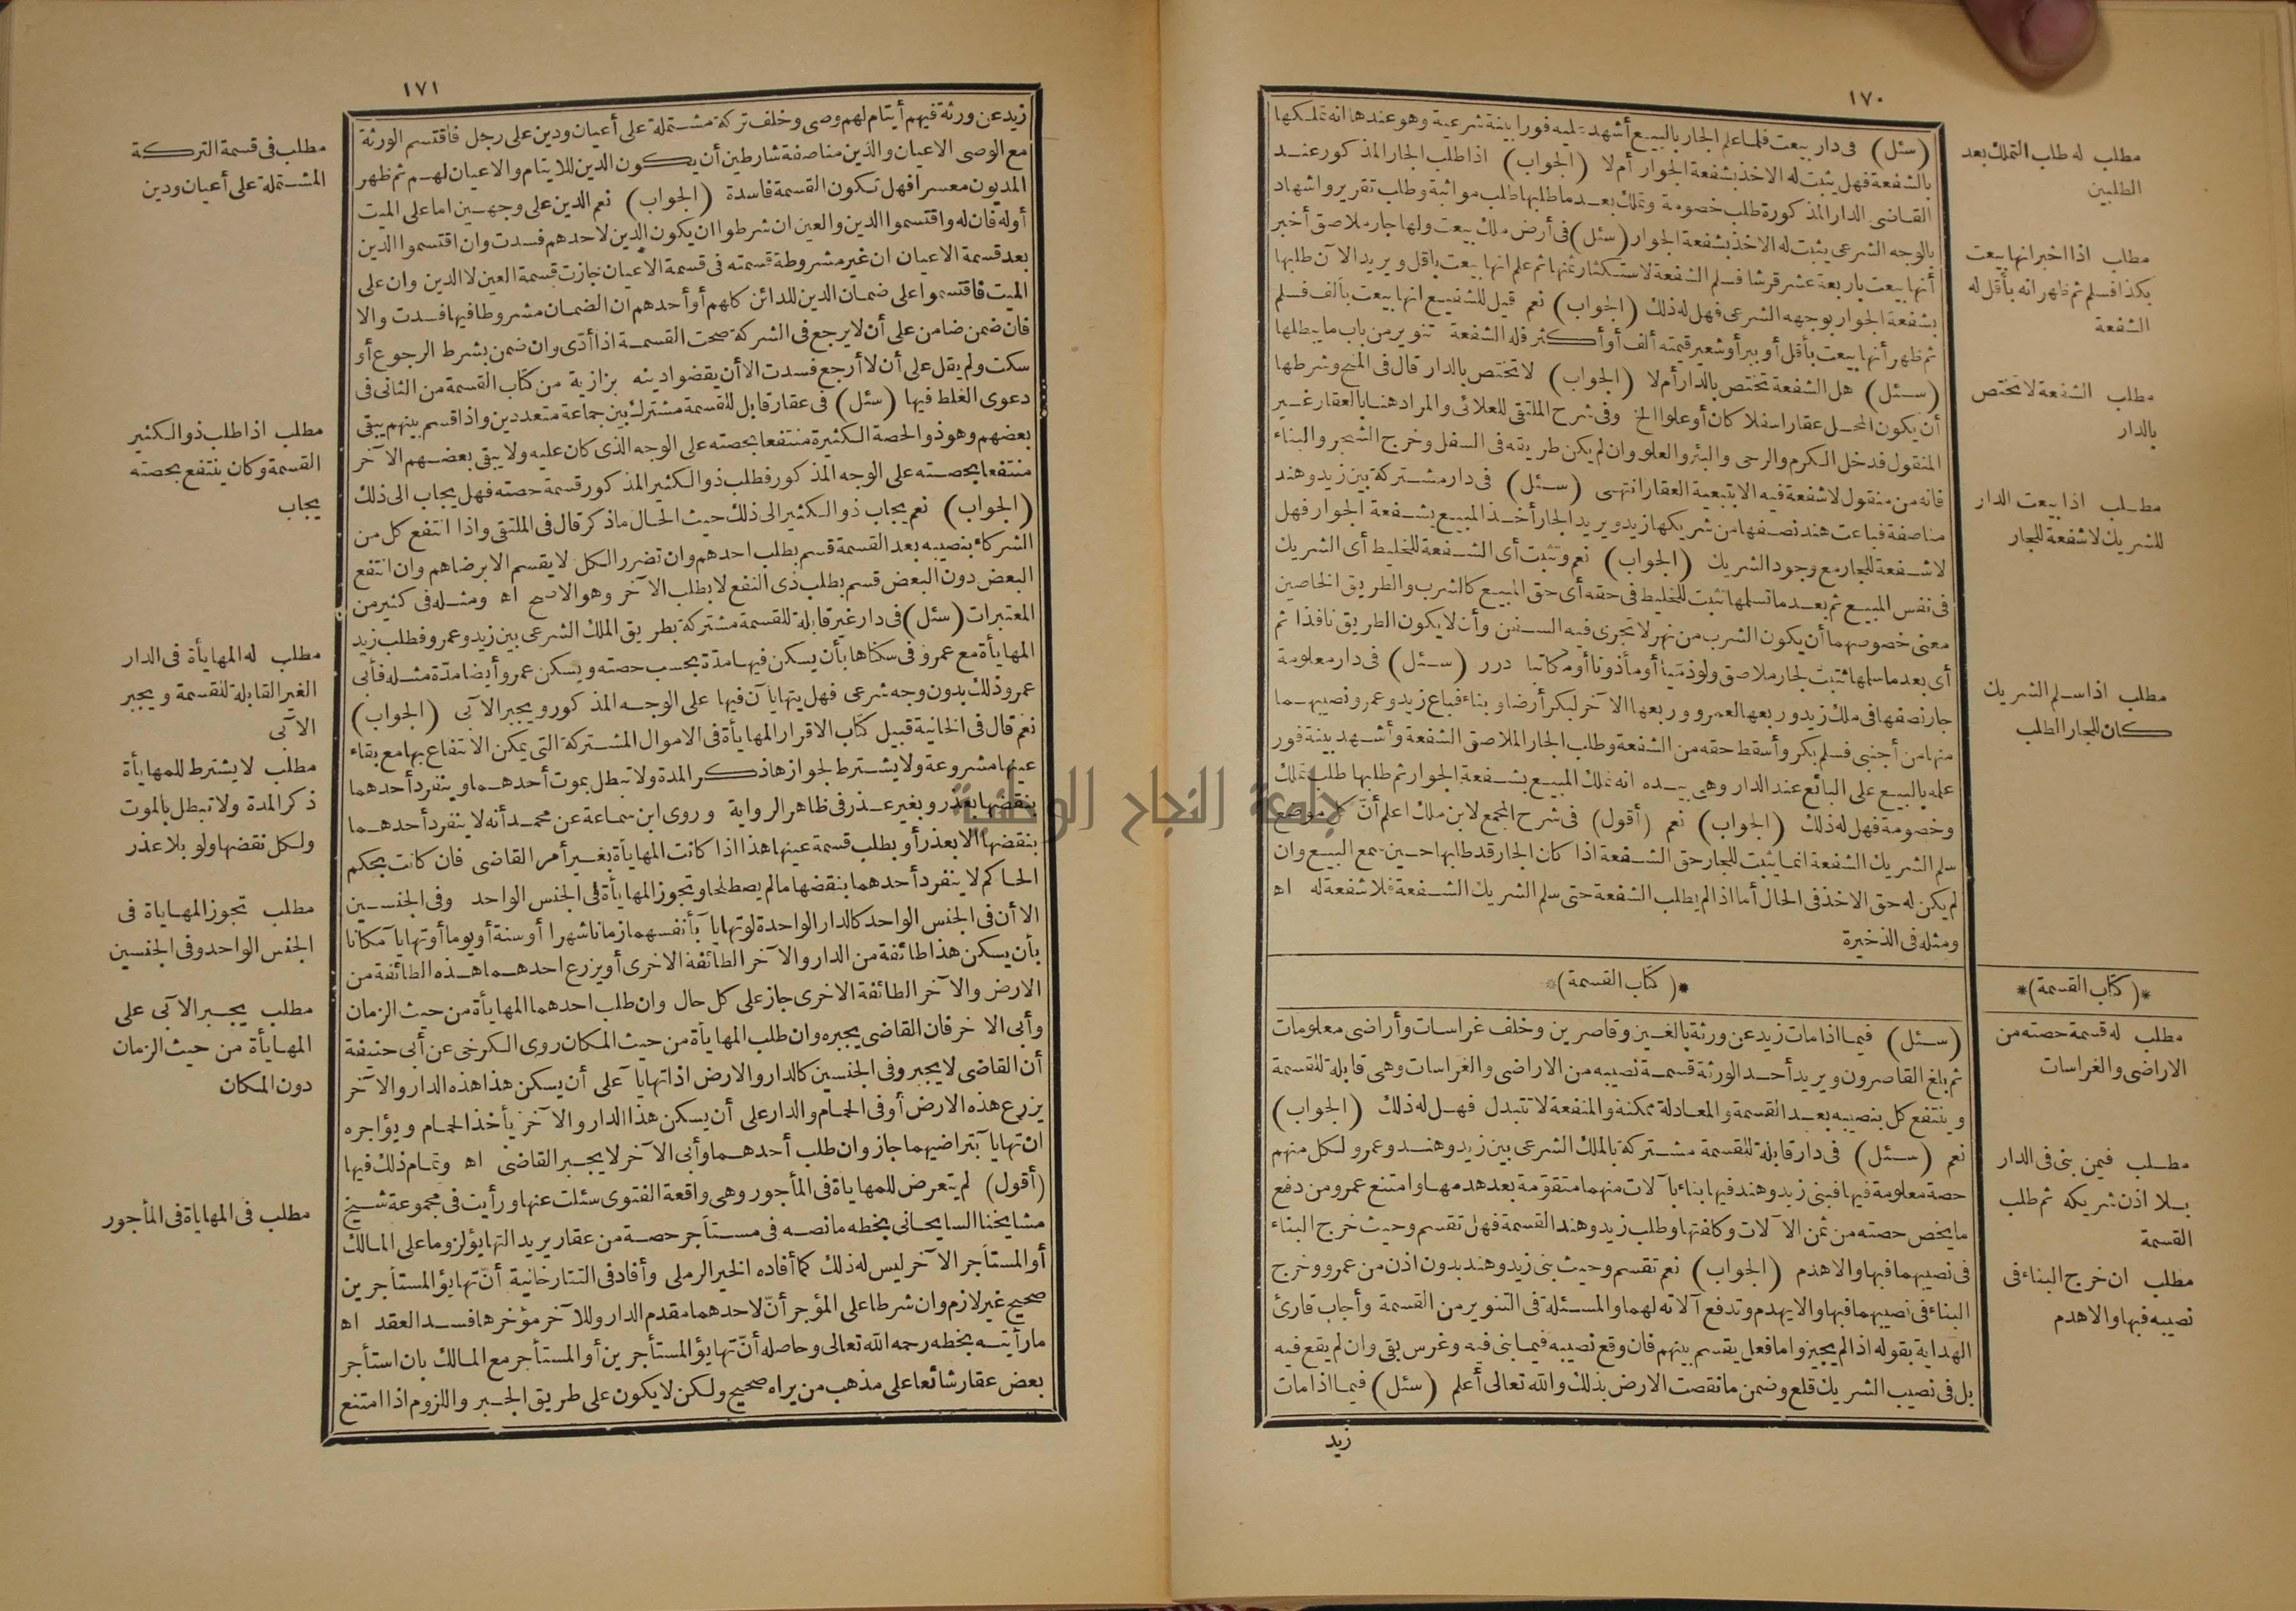 ١٧٠
(سئل) فى دار بيعت فلما علم الجار بالبيع أشهد عليه فورا بينة شرعية وهو عندها انه تملكها
بالشفعة فهل يثبت له الاخذ بشفعة الجوار أم لا (الجواب) اذا طلب الجار المذكور عند
القاضى الدار المذكورة طلب خصومة وتملك بعد ما طلبها طلب مواثبة وطلب تقرير واشهاد
بالوجه الشرعى يثبت له الاخذ بشفعة الجوار (سئل) فى أرض ملك بيعت ولها جار ملاصق أخبر
أنها بيعت باربعة عشر قرشا فسلم الشفعة لاستكثار ثمنها ثم علم انها بيعت باقل ويريد الآن طلبها
بشفعة الجوار بوجهه الشرعى فهل له ذلك (الجواب) نعم قيل للشفيع انها بيعت بألف فسلم
ثم ظهر أنها بيعت بأقل أو ببر أو شعير قيمته ألف أو أكثر فله الشفعة تنوير من باب ما يبطلها
(سئل) هل الشفعة تختص بالدار أم لا (الجواب) لا تختص بالدار قال فى المنح وشرطها
أن يكون المحل عقارا سفلا كان أو علوا الخ وفى شرح الملتقى للعلائى والمراد هنا بالعقار غير
المنقول فدخل الكرم والرحى والبئر والعلو وان لم يكن طريقه فى السفل وخرج الشجر والبناء
فانه من منقول لا شفعة فيه الا بتبعية العقار انتهى (سئل) فى دار مشتركة بين زيد وهند
مناصفة فباعت هند نصفها من شريكها زيد ويريد الجار أخذ المبيع بشفعة الجوار فهل
لا شفعة للجار مع وجود الشريك (الجواب) نعم وتثبت أى الشفعة للخليط أى الشريك
فى نفس المبيع ثم بعد ما تسلمها تثبت للخليط فى حقه أى حق المبيع كالشرب والطريق الخاصين
معنى خصوصهما أن يكون الشرب من نهر لا تجرى فيه السفن وأن لا يكون الطريق نافذا ثم
أى بعد ما سلمها تثبت لجار ملاصق ولو ذميا أو مأذونا أو مكاتبا درر (سئل) فى دار معلومة
جار نصفها فى ملك زيد وربعها لعمرو وربعها الآخر لبكر أرضا وبناء فباع زيد وعمرو نصيبهما
منها من أجنبى فسلم بكر وأسقط حقه من الشفعة وطلب الجار الملاصق الشفعة وأشهد بينة فور
علمه بالبيع على البائع عند الدار وهى بيده انه تملك المبيع بشفعة الجوار ثم طلبها طلب تملك
وخصومة فهل له ذلك (الجواب) نعم (أقول) فى شرح المجمع لابن ملك اعلم أنّ كل موضع
سلم الشريك الشفعة انما يثبت للجار حق الشفعة اذا كان الجار قد طلبها حين سمع البيع وان
لم يكن له حق الاخذ فى الحال أما اذا لم يطلب الشفعة حتى سلم الشريك الشفعة فلا شفعة له اه
ومثله فى الذخيرة
*(كتاب القسمة)*
(سئل) فيما اذا مات زيد عن ورثة بالغين وقاصرين وخلف غراسات وأراضى معلومات
ثم بلغ القاصرون ويريد أحد الورثة قسمة نصيبه من الاراضى والغراسات وهى قابلة للقسمة
وينتفع كل بنصيبه بعد القسمة والمعادلة ممكنة والمنفعة لا تتبدل فهل له ذلك (الجواب)
نعم (سئل) فى دار قابلة للقسمة مشتركة بالملك الشرعى بين زيد وهند وعمرو لكل منهم
حصة معلومة فيها فبنى زيد وهند فيها بناء بآلات منهما متقوّمة بعد هدمها وامتنع عمرو من دفع
ما يخص حصته من ثمن الآلات وكلفتها وطلب زيد وهند القسمة فهل تقسم وحيث خرج البناء
فى نصيبهما فبها والا هدم (الجواب) نعم تقسم وحيث بنى زيد وهند بدون اذن من عمرو وخرج
البناء فى نصيبهما فبها والا يهدم وتدفع آلاته لهما والمسئلة فى التنوير من القسمة وأجاب قارئ
الهداية بقوله اذا لم يجيزوا ما فعل يقسم بينهم فان وقع نصيبه فيما بنى فيه وغرس بقى وان لم يقع فيه
بل فى نصيب الشريك قلع وضمن ما نقصت الارض بذلك والله تعالى أعلم (سئل) فيما اذا مات
زيد
مطلب له طلب التملك بعد
الطلبين
مطلب اذا اخبر انها بيعت
بكذا فسلم ثم ظهر انه بأقل له
الشفعة
مطلب الشفعة لا تختص
بالدار
مطلب اذا بيعت الدار
للشريك لا شفعة للجار
مطلب اذا سلم الشريك
كان للجار الطلب
*(كتاب القسمة)*
مطلب له قسمة حصته من
الاراضى والغراسات
مطلب فيمن بنى فى الدار
بلا اذن شريكه ثم طلب
القسمة
مطلب ان خرج البناء فى
نصيبه فبها والا هدم
١٧١
زيد عن ورثة فيهم أيتام لهم وصى وخلف تركة مشتملة على أعيان ودين على رجل فاقتسم الورثة
مع الوصى الاعيان والدين مناصفة شارطين أن يكون الدين للايتام والاعيان لهم ثم ظهر
المديون معسرا فهل تكون القسمة فاسدة (الجواب) نعم الدين على وجهين اما على الميت
أوله فان له واقتسموا الدين والعين ان شرطوا ان يكون الدين لاحدهم فسدت وان اقتسموا الدين
بعد قسمة الاعيان ان غير مشروطة قسمته فى قسمة الاعيان جازت قسمة العين لا الدين وان على
الميت فاقتسموا على ضمان الدين للدائن كلهم أو أحدهم ان الضمان مشروطا فيها فسدت والا
فان ضمن ضامن على أن لا يرجع فى الشركة صحت القسمة اذا أدّى وان ضمن بشرط الرجوع أو
سكت ولم يقل على أن لا أرجع فسدت الا أن يقضوا دينه بزازية من كتاب القسمة من الثانى فى
دعوى الغلط فيها (سئل) فى عقار قابل للقسمة مشترك بين جماعة متعددين واذا قسم بينهم يبقى
بعضهم وهو ذو الحصة الكثيرة منتفعا بحصته على الوجه الذى كان عليه ولا يبقى بعضهم الآخر
منتفعا بحصته على الوجه المذكور فطلب ذو الكثير المذكور قسمة حصته فهل يجاب الى ذلك
(الجواب) نعم يجاب ذو الكثير الى ذلك حيث الحال ما ذكر قال فى الملتقى واذا انتفع كل من
الشركاء بنصيبه بعد القسمة قسم بطلب احدهم وان تضرر الكل لا يقسم الا برضاهم وان انتفع
البعض دون البعض قسم بطلب ذى النفع لا بطلب الآخر وهو الاصح اه ومثله فى كثير من
المعتبرات (سئل) فى دار غير قابلة للقسمة مشتركة بطريق الملك الشرعى بين زيد وعمرو فطلب زيد
المهايأة مع عمرو فى سكناها بأن يسكن فيها مدّة بحسب حصته ويسكن عمرو أيضا مدّة مثله فأبى
عمرو ذلك بدون وجه شرعى فهل يتهايآن فيها على الوجه المذكور ويجبر الآبى (الجواب)
نعم قال فى الخانية قبيل كتاب الاقرار المهايأة فى الاموال المشتركة التى يمكن الانتفاع بها مع بقاء
عينها مشروعة ولا يشترط لجوازها ذكر المدة ولا تبطل بموت أحدهما وينفرد أحدهما
بنقضها بعذر وبغير عذر فى ظاهر الرواية وروى ابن سماعة عن محمد أنه لا ينفرد أحدهما
بنقضها الا بعذر أو يطلب قسمة عينها هذا اذا كانت المهايأة بغير أمر القاضى فان كانت بحكم
الحاكم لا ينفرد أحدهما بنقضها ما لم يصطلحا وتجوز المهايأة فى الجنس الواحد وفى الجنسين
الا أن فى الجنس الواحد كالدار الواحدة لو تهايآ بأنفسهما زمانا شهرا أو سنة أو يوما أو تهايآ مكانا
بأن يسكن هذا طائفة من الدار والآخر الطائفة الاخرى أو يزرع احدهما هذه الطائفة من
الارض والآخر الطائفة الاخرى جاز على كل حال وان طلب احدهما المهايأة من حيث الزمان
وأبى الآخر فان القاضى يجبره وان طلب المهايأة من حيث المكان روى الكرخى عن أبى حنيفة
أن القاضى لا يجبر وفى الجنسين كالدار والارض اذا تهايآ على أن يسكن هذا هذه الدار والآخر
يزرع هذه الارض أو فى الحمام والدار على أن يسكن هذا الدار والآخر يأخذ الحمام ويؤاجره
ان تهايآ بتراضيهما جاز وان طلب أحدهما وأبى الآخر لا يجبر القاضى اه وتمام ذلك فيها
(أقول) لم يتعرض للمهايأة فى المأجور وهى واقعة الفتوى سئلت عنها ورأيت فى مجموعة شيخ
مشايخنا السايحانى بخطه ما نصه فى مستأجر حصة من عقار يريد التهايؤ لزوما على المالك
أو المستأجر الآخر ليس له ذلك كما أفاده الخير الرملى وأفاد فى التتارخانية أنّ تهايؤ المستأجرين
صحيح غير لازم وان شرطا على المؤجر أنّ لاحدهما مقدم الدار وللآخر مؤخرها فسد العقد اه
ما رأيته بخطه رحمه الله تعالى وحاصله أنّ تهايؤ المستأجرين أو المستأجر مع المالك بان استأجر
بعض عقار شائعا على مذهب من يراه صحيح ولكن لا يكون على طريق الجبر واللزوم اذا امتنع
مطلب فى قسمة التركة
المشتملة على أعيان ودين
مطلب اذا طلب ذو الكثير
القسمة وكان ينتفع بحصته
يجاب
مطلب له المهايأة فى الدار
الغير القابلة للقسمة ويجبر
الآبى
مطلب لا يشترط للمهايأة
ذكر المدة ولا تبطل بالموت
ولكل نقضها ولو بلا عذر
مطلب تجوز المهاياة فى
الجنس الواحد وفى الجنسين
مطلب يجبر الآبى على
المهايأة من حيث الزمان
دون المكان
مطلب فى المهاياة فى المأجور
جامعة النجاح الوطنية